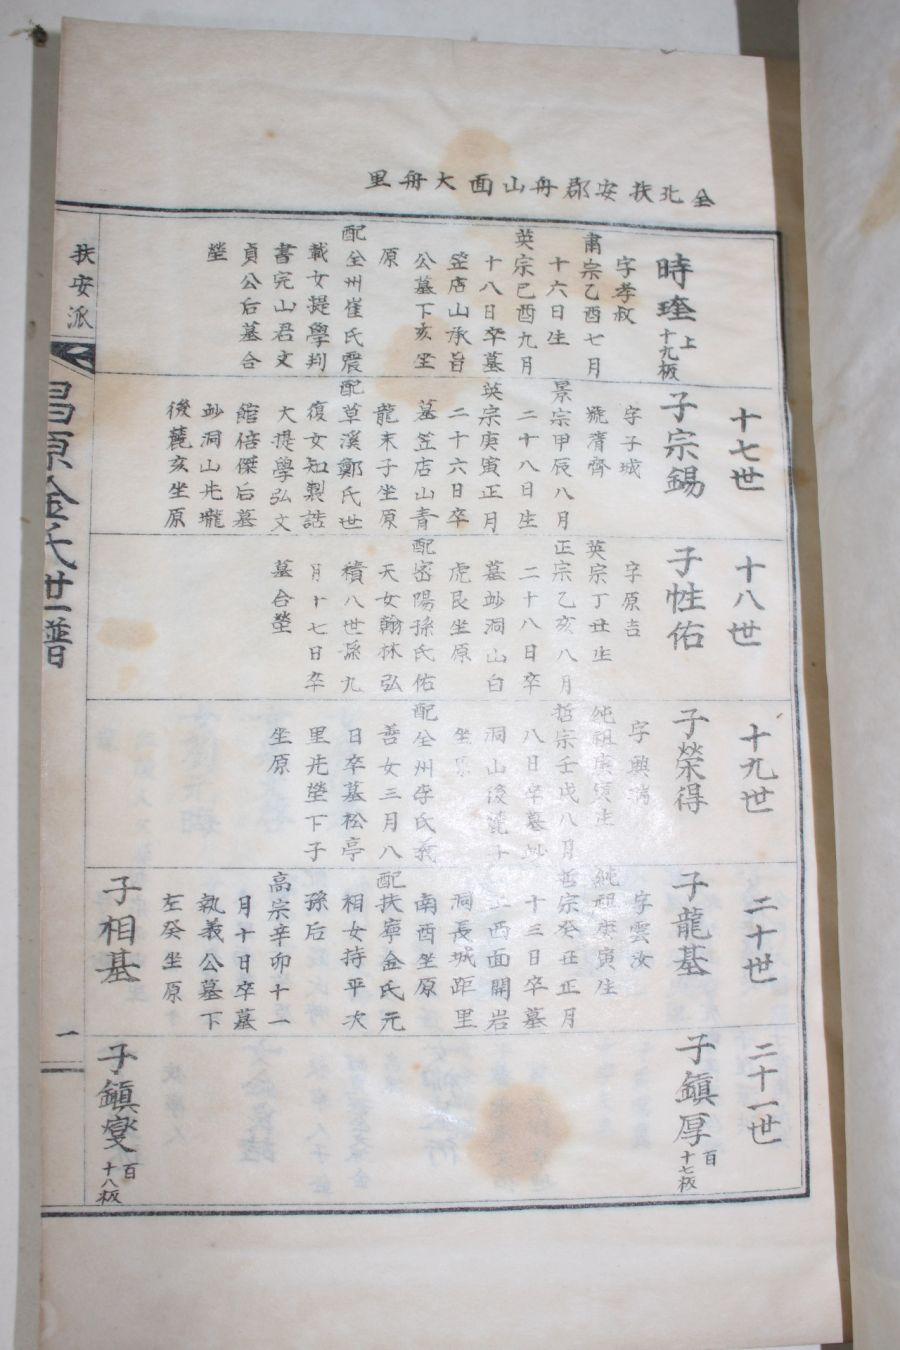 全北扶安郡舟山面大舟里
時瑝 上十九板
字孝叔
肅宗乙酉七月
十六日生
英宗己酉九月
十八日卒墓
笠店山承旨
公墓下亥坐
原
配全州崔氏震
載女提學判
書完山君文
貞公后墓合
塋
十七世
子宗錫
字子城
號齊
景宗甲辰八月
二十八日生
英宗庚寅正月
二十六日卒
墓笠店山青
龍末子坐原
配草溪鄭氏世
復女知製誥
大提學弘文
館倍傑后墓
妙洞山先壠
後麓亥坐原
十八世
子性佑
字原吉
英宗丁丑生
正宗乙亥八月
二十八日卒
墓妙洞山白
虎艮坐原
配密陽孫氏佑
天女翰林弘
積八世孫九
月十七日卒
墓合塋
十九世
子榮得
字興瑞
純祖庚寅生
哲宗壬戌八月
八日卒墓妙
洞山後麓子
坐原
配全州李氏義
善女三月八
日卒墓松亭
里先塋下子
坐原
二十世
子龍基
字雲汝
純祖庚寅生
哲宗癸丑正月
十三日卒墓
西面開岩
洞長城距里
南酉坐原
配扶寧金氏元
相女持平次
孫后
高宗辛卯十一
月十日卒墓
執義公墓下
左癸坐原
子相基
二十一世
子鎭厚 百十七板
子鎭燮 百十八板
扶安派
昌原金氏世譜
一